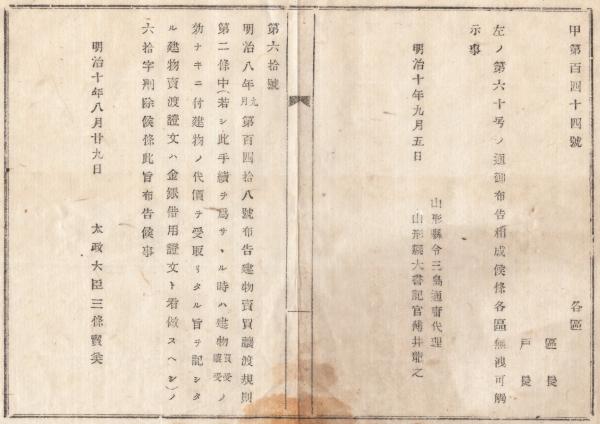 甲第百四十四號
各區
區長
戸長
左ノ第六十号ノ通御布告相成候條各區無洩可觸
示事
明治十年九月五日
山形縣令三島通庸代理
山形縣大書記官薄井龍之
第六拾號
明治八年九月第百四拾八號布告建物賣買讓渡規則
第二條中(若シ此手續ヲ爲サヽル時ハ建物買受讓受ノ
効ナキニ付建物ノ代價ヲ受取リタル旨ヲ記シタ
ル建物賣渡證文ハ金銀借用證文ト看做スヘシ)ノ
六拾字刪除候條此旨布告候事
明治十年八月廿九日
太政大臣三條實美